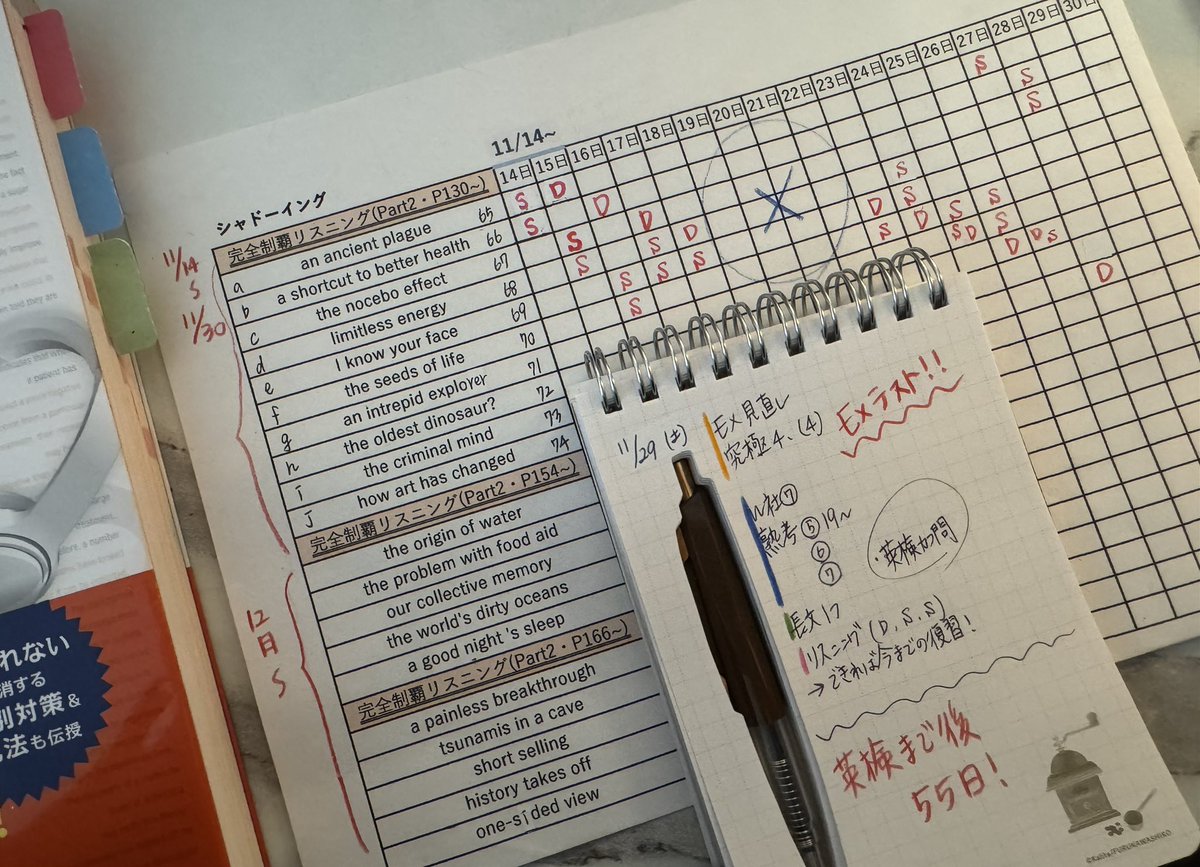 11/14~
シャドーイング
14日 15日 16日 17日 18日 19日 20日 21日 22日 23日 24日 25日 26日 27日 28日 29日 30日
11/14
S
11/30
完全制覇リスニング(Part2・P130~)
a an ancient plague 65
b a shortcut to better health 66
c the nocebo effect 67
d limitless energy 68
e I know your face 69
f the seeds of life 70
g an intrepid exployer 71
h the oldest dinosaur? 72
i the criminal mind 73
j how art has changed 74
完全制覇リスニング(Part2・P154~)
the origin of water
the problem with food aid
our collective memory
the world's dirty oceans
a good night 's sleep
12日 S
完全制覇リスニング(Part2・P166~)
a painless breakthrough
tsunamis in a cave
short selling
history takes off
one-sided view
S D
S D D S
S S S S D D S D
S S S D S S
S S S S
S S D S D S D D S
D
11/29(土)
Ex見直し
究極4、(4)
Exテスト!!
熟考⑤19~
⑥
⑦
長文17
リスニング(D,S,S)
→できれば今までの復習!
英検まで後
55日!
©Kaldi/FURUKAWASHIRO
れない
消する
別対策&
法も伝授